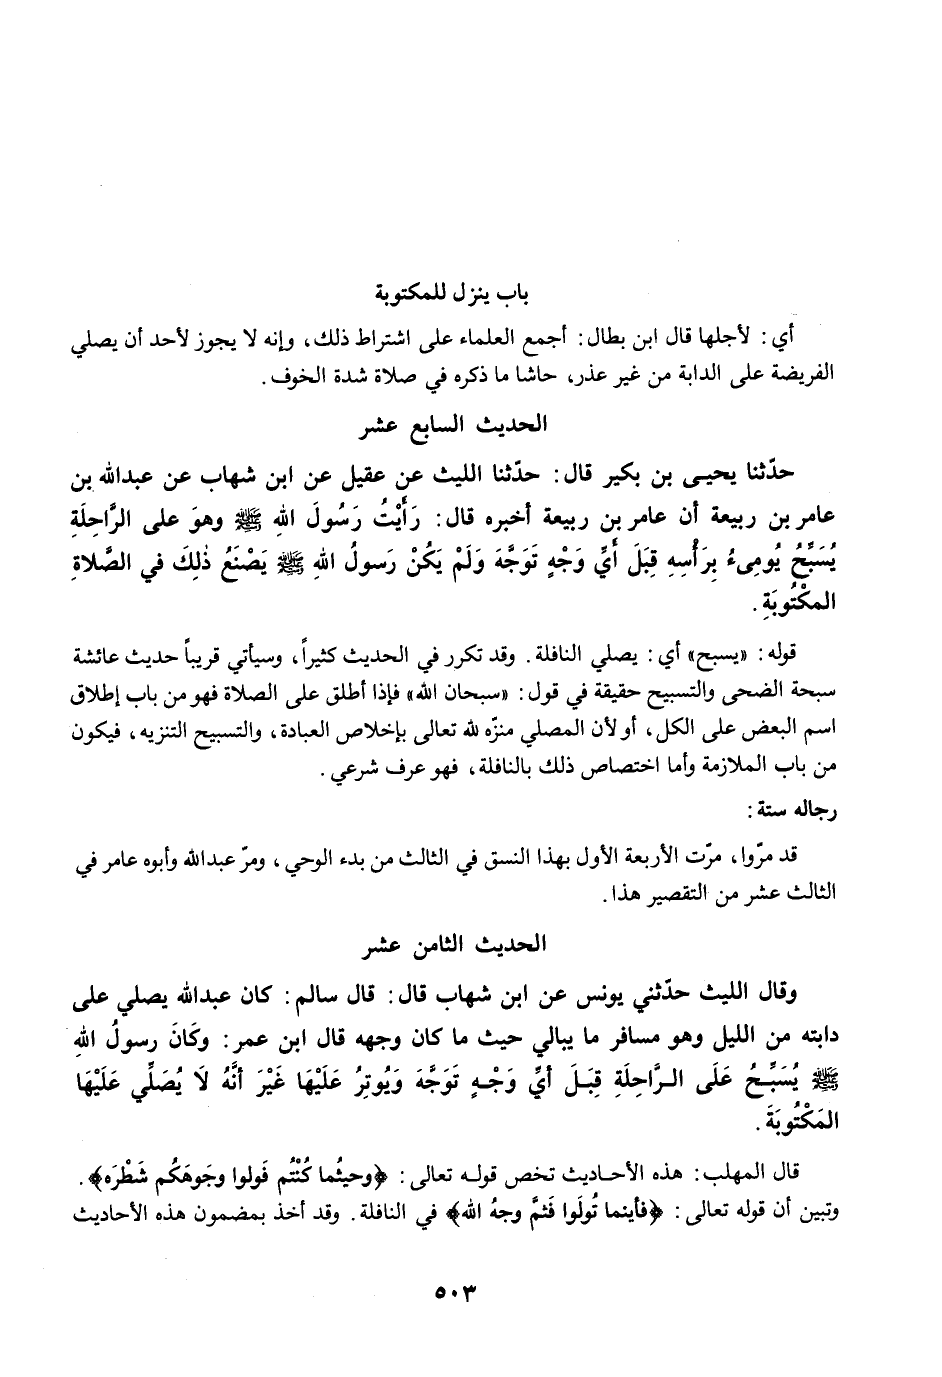 باب ينزل للمكتوبة
أي: لأجلها قال ابن بطال: أجمع العلماء على اشتراط ذلك، وإنه لا يجوز لأحد أن يصلي
الفريضة على الدابة من غير عذر، حاشا ما ذكره في صلاة شدة الخوف.
الحديث السابع عشر
حدّثنا يحيى بن بكير قال: حدّثنا الليث عن عقيل عن ابن شهاب عن عبدالله بن
عامر بن ربيعة أن عامر بن ربيعة أخبره قال: رَأَيْتُ رَسُولَ اللهِ ﷺ وهوَ على الرَّاحِلَةِ
يُسَبِّحُ يُومِىءُ بِرَأْسِهِ قِبَلَ أَيِّ وَجْهٍ تَوَجَّهَ وَلَمْ يَكُنْ رَسولُ اللهِ ﷺ يَصْنَعُ ذٰلِكَ في الصَّلاةِ
المكْتُوبَةِ.
قوله: «يسبح» أي: يصلي النافلة. وقد تكرر في الحديث كثيراً، وسيأتي قريباً حديث عائشة
سبحة الضحى والتسبيح حقيقة في قول: «سبحان الله» فإذا أطلق على الصلاة فهو من باب إطلاق
اسم البعض على الكل، أو لأن المصلي منزّه لله تعالى بإخلاص العبادة، والتسبيح التنزيه، فيكون
من باب الملازمة وأما اختصاص ذلك بالنافلة، فهو عرف شرعي.
رجاله ستة:
قد مرّوا، مرّت الأربعة الأول بهذا النسق في الثالث من بدء الوحي، ومرّ عبدالله وأبوه عامر في
الثالث عشر من التقصير هذا.
الحديث الثامن عشر
وقال الليث حدّثني يونس عن ابن شهاب قال: قال سالم: كان عبدالله يصلي على
دابته من الليل وهو مسافر ما يبالي حيث ما كان وجهه قال ابن عمر: وكَانَ رسولُ اللهِ
ﷺ يُسَبِّحُ عَلَى الرَّاحِلَةِ قِبَلَ أيِّ وَجْهٍ تَوَجَّهَ وَيُوتِرُ عَلَيْهَا غَيْرَ أنَّهُ لَا يُصَلِّي عَلَيْهَا
المَكْتُوبَةَ.
قال المهلب: هذه الأحاديث تخص قوله تعالى: ﴿وحيثُما كُنْتُم فَولوا وجَوهَكُم شَطْرَه﴾.
وتبين أن قوله تعالى: ﴿فأينما تُولَوا فَثمَّ وجهُ الله﴾ في النافلة. وقد أخذ بمضمون هذه الأحاديث
٥٠٣